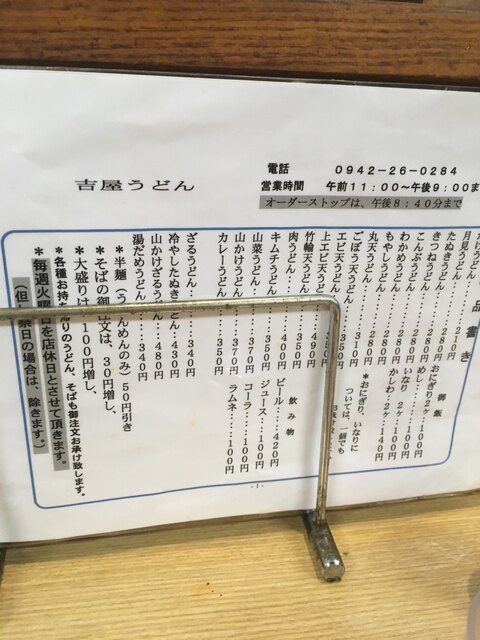 吉屋うどん
電話 0942-26-0284
営業時間 午前11:00〜午後9:00ま
オーダーストップは、午後8:40分まで
品書き
月見うどん・・・・210
たぬきうどん・・・280
きつねうどん・・・280円
こんぶうどん・・・280円
わかめうどん・・・280円
もやしうどん・・・280円
丸天うどん・・・・280円
ごぼう天うどん・・・310
エビ天うどん・・・350
上エビ天うどん
竹輪天うどん・・・490
肉うどん・・・・・350円
キムチうどん・・・400円
山菜うどん・・・・350円
山かけうどん・・・370円
カレーうどん・・・350円
ざるうどん・・・・340円
冷やしたぬきうどん・・430円
山かけざるうどん・・480円
湯だめうどん・・・340円
御飯
おにぎり2ヶ・・100円
めし・・・・・・100円
いなり 2ヶ・・100円
かしわ 2ヶ・・140円
*おにぎり、いなりに
ついては、一個でも
飲み物
ビール・・・420円
ジュース・・100円
コーラ・・・100円
ラムネ・・・100円
*半麺(うどんめんのみ)50円引き
*そばの御注文は、30円増し、
*大盛りは、100円増し、
*各種お持ち帰りのうどん、そばも御注文お承け致します。
*毎週火曜日を店休日とさせて頂きます。
(但し祭日の場合は、除きます。)
-1-